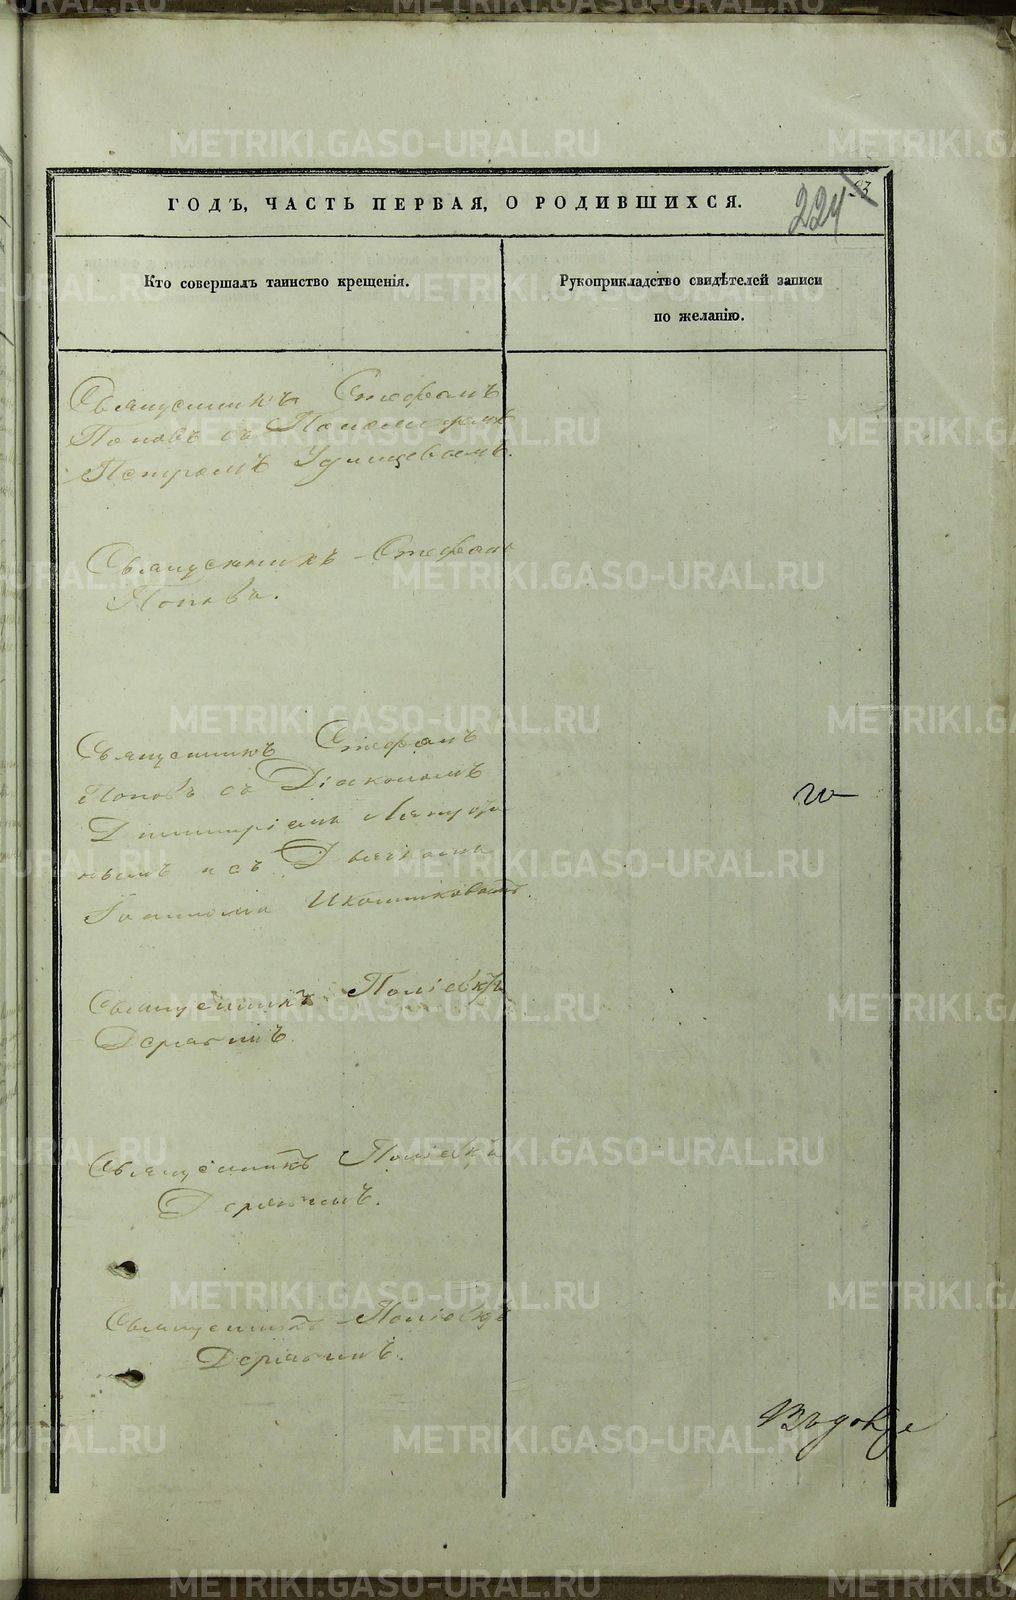 ГОДЪ, ЧАСТЬ ПЕРВАЯ, О РОДИВШИХСЯ.
23
224
Кто совершалъ таинство крещенія.
Рукоприкладство свидѣтелей записи
по желанію.
Священникъ Стефанъ
Поповъ съ Пономаремъ
Петромъ Удинцевымъ.
Священникъ Стефанъ
Поповъ.
Священникъ Стефанъ
Поповъ съ Діакономъ
Димитріемъ
нымъ и съ Дьячкомъ
Іоанномъ Иконниковымъ.
Священникъ Поліевктъ
Дерябинъ.
Священникъ Поліевктъ
Дерябинъ.
Священникъ Поліевктъ
Дерябинъ.
METRIKI.GASO-URAL.RU